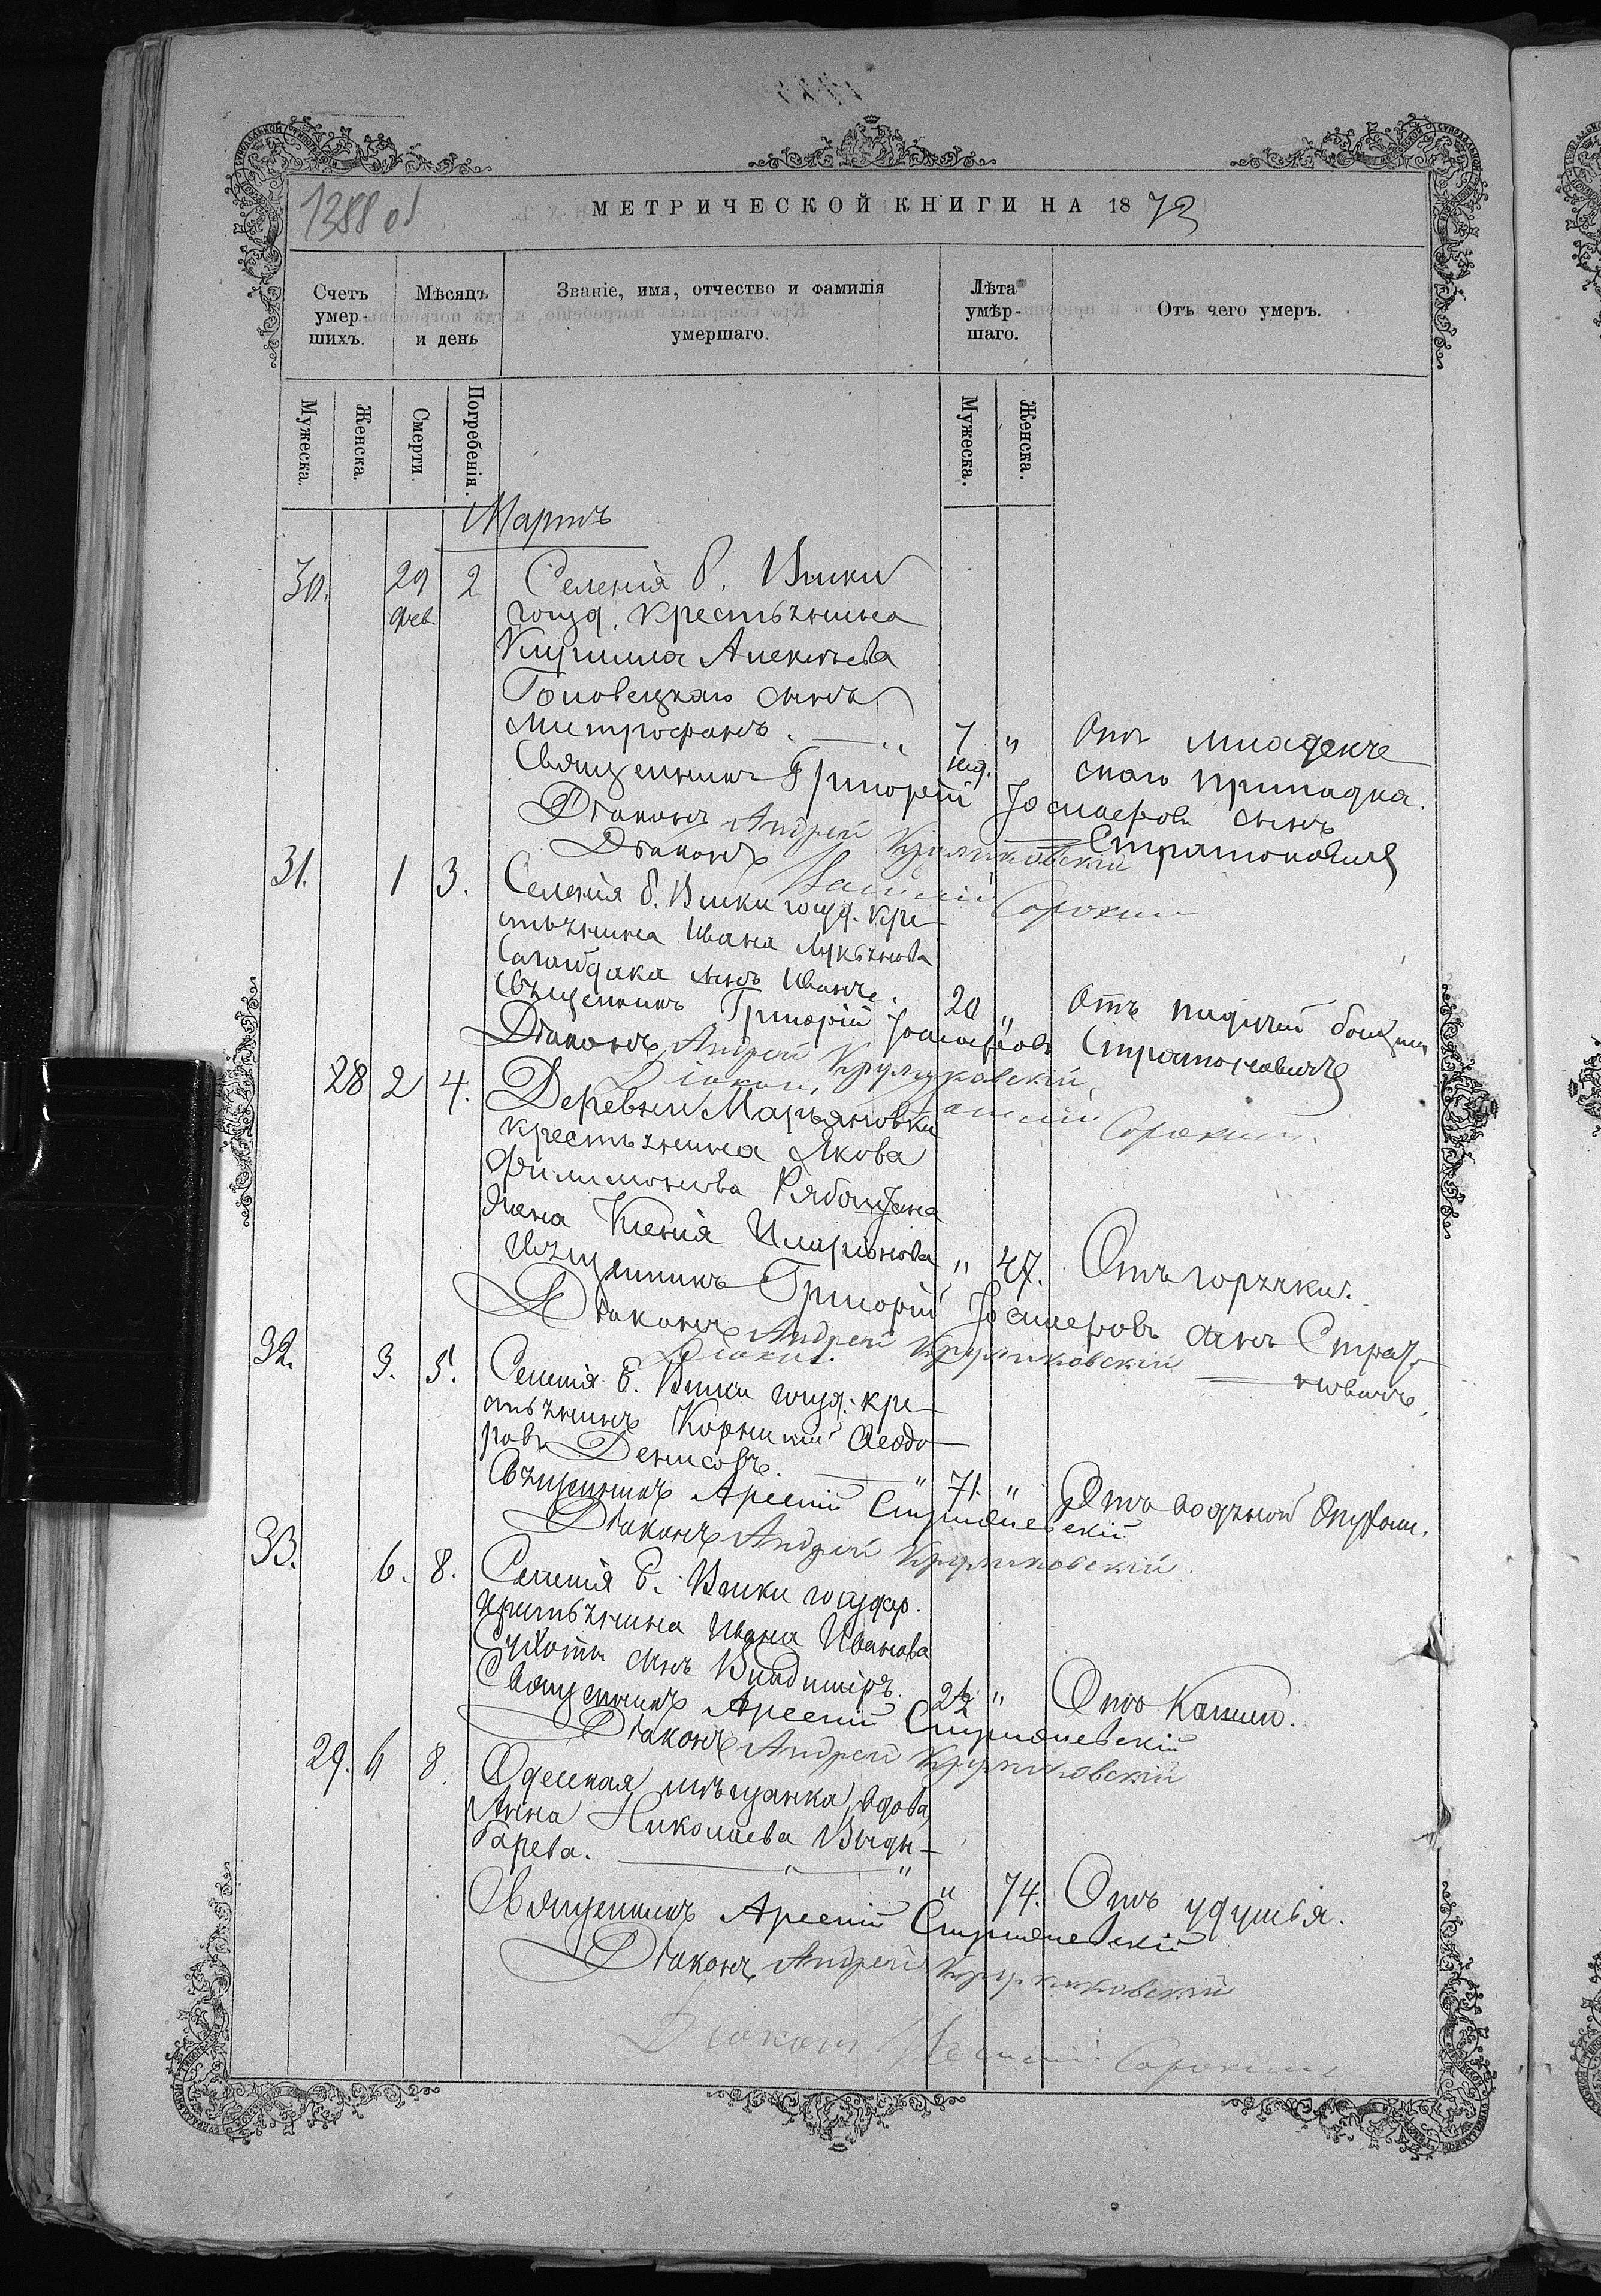 1388 об
МЕТРИЧЕСКОЙ КНИГИ НА 1873
Счетъ умер-шихъ.
Мѣсяцъ и день
Званіе, имя, отчество и фамилія умершаго.
Лѣта умѣр-шаго.
Отъ чего умеръ.
Мужеска.
Женска.
Смерти
Погребенія.
Мужеска.
Женска.
Мартъ
30. 29 фев 2 Селенія б. Виски
госуд. крестьянина
Кирилла Алексѣева
Головецкаго сынъ
Митрофанъ. 7 нед. " Отъ младенче
скаго припадка.
Священникъ Григорій Іосифовъ сынъ
Стратоновичъ
Діаконъ Андрей Круликовскій
Діаконъ Василій Сорокин
31. 1 3. Селенія б. Виски госуд. кре-
стьянина Ивана Лукьянова
Сагайдака сынъ Иванъ. 20 " Отъ падучей болѣзни
Священникъ Григорій Стратоновичъ
Діаконъ Андрей Круликовскій
Діакон Василій Сорокин.
28 2 4. Деревни Марьяновки
крестьянина Якова
Филимонова
жена Ксенія Иларіонова " 47. Отъ горячки.
Священникъ Григорій сынъ Страто-
новичъ,
Діаконъ Андрей Круликовскій
Діакон.
32. 3. 5. Селенія б. Виски госуд. кре-
стьянинъ Корнилій Ѳеодо-
ровъ Денисовъ. " 71. " Отъ водяной опухоли.
Священникъ Арсеній
Діаконъ Андрей Круликовскій.
33. 6. 8. Селенія б. Виски государ.
крестьянина Ивана Иванова
сынъ Владиміръ. 2½ " Отъ кашлю.
Священникъ Арсеній
Діаконъ Андрей Круликовскій
29. 6 8. Одесская мѣщанка, вдова,
Анна Николаева
" 74. Отъ удушья.
Священникъ Арсеній
Діаконъ Андрей Круликовскій
Діакон Василій Сорокин